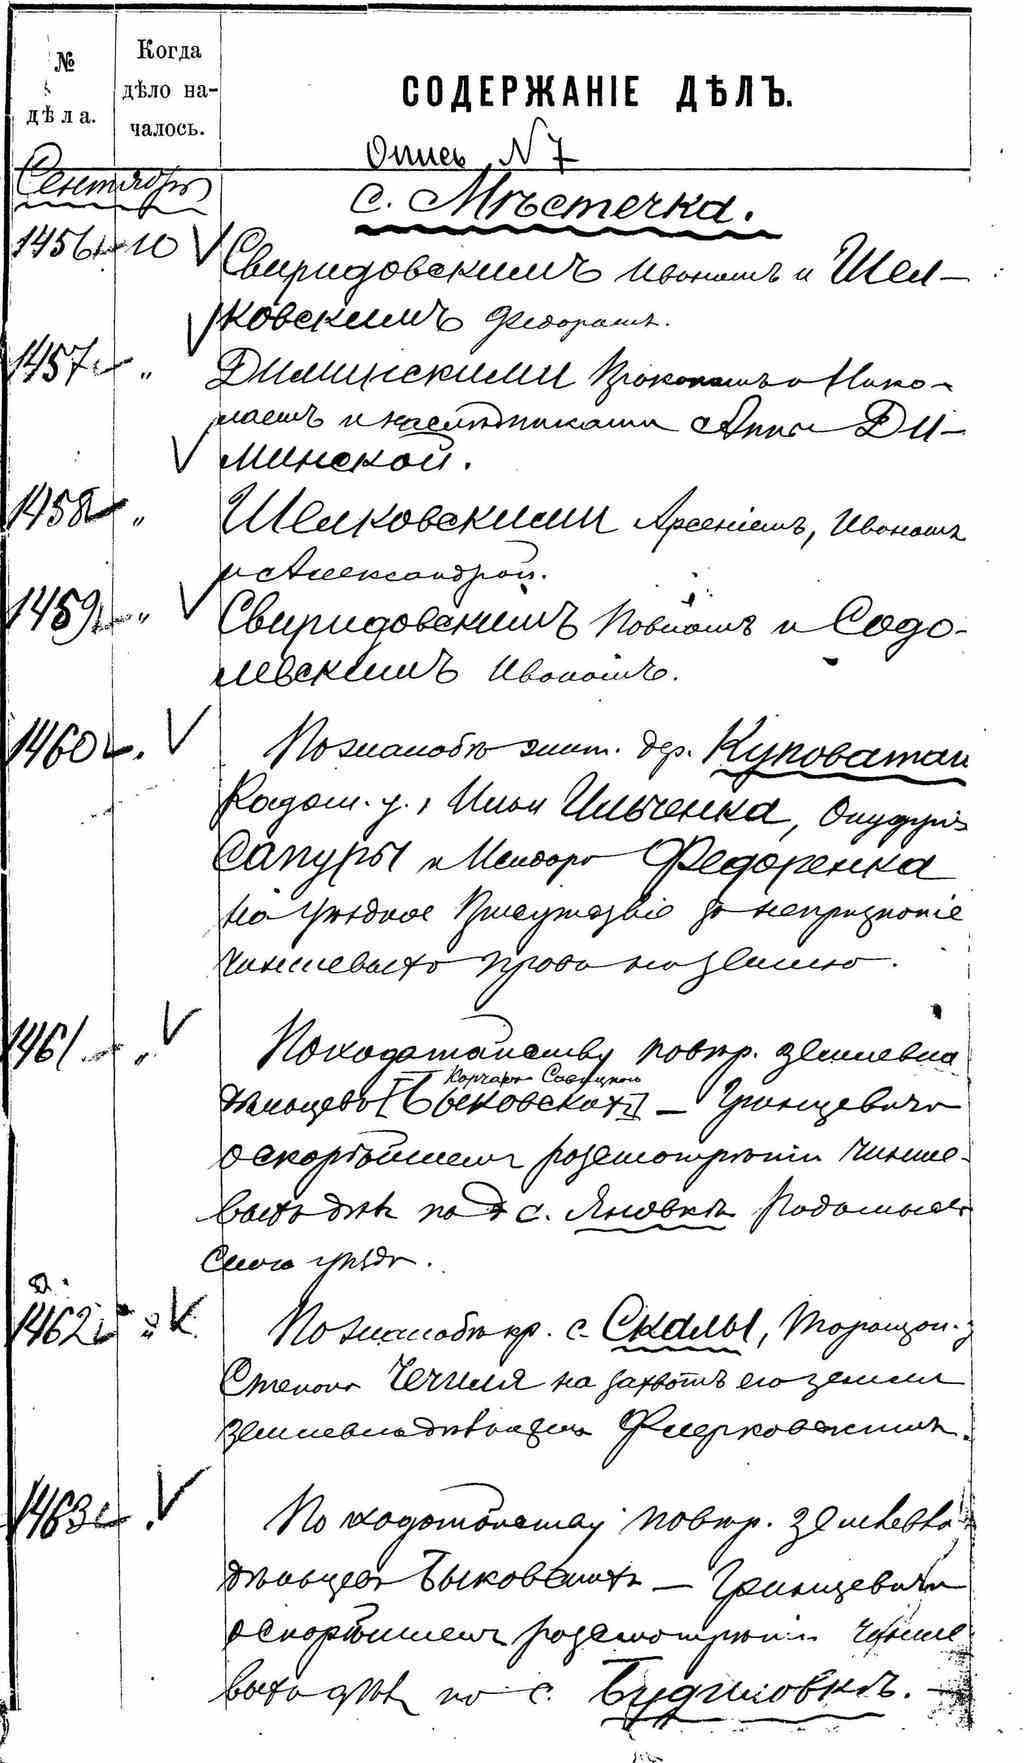 №
дѣла.
Когда
дѣло на-
чалось.
СОДЕРЖАНІЕ ДѢЛЪ.
Опись N 7
Сентябрь
с. Мѣстечка.
1456 10 Свиридовскимъ Иваномъ и Шел-
ковскимъ Федоромъ.
1457 " Диминскими Прокопомъ и Нико-
лаемъ и наслѣдниками Анны Ди-
минской.
1458 " Шелковскими Арсеніемъ, Иваномъ
и Александрой.
1459 " Свиридовскимъ Павломъ и Садо-
левскимъ Иваномъ.
1460 По жалобѣ жит. дер. Куповатой
Радом. у., Ильи Ильченка,
Сапуры и Исидора Федоренка
на уѣздное Присутствіе за непризнаніе
чиншеваго права на землю.
1461 " По ходатайству повѣр. землевла
дѣльцевъ [Быковскихъ] — Гринцевича
о скорѣйшемъ разсмотрѣніи чинше-
выхъ дѣлъ по с. Яновкѣ Радомысль
скаго уѣзда.
1462 " По жалобѣ кр. с. Скалы, Таращан. у
Степана Чечиля на захватъ его земли
землевладѣльцемъ
1463 По ходатайству повѣр. землевла
дѣльцевъ Быковскихъ — Гринцевича
о скорѣйшемъ разсмотрѣніи чинше
выхъ дѣлъ по с. Будиловкѣ. —